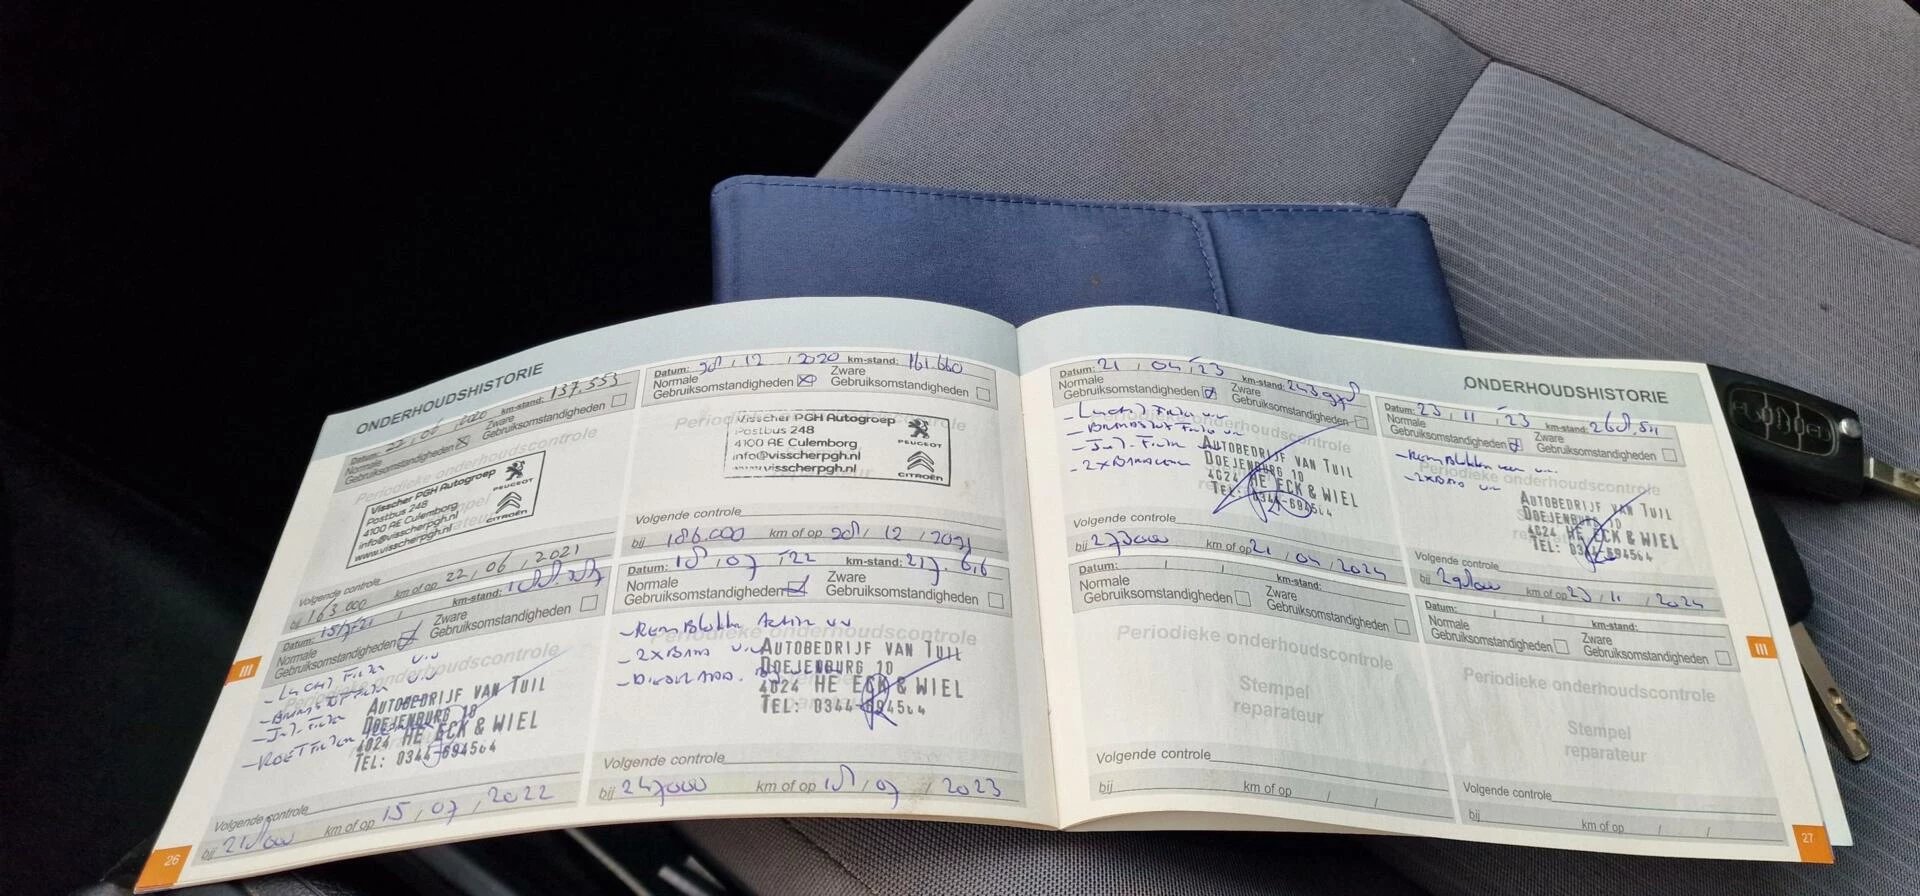 ONDERHOUDSHISTORIE
Datum: 22, 06, 2020 km-stand: 137.553
Normale
Gebruiksomstandigheden
Zware
Gebruiksomstandigheden
Periodieke onderhoudscontrole
Visscher PGH Autogroep
Postbus 248
4100 AE Culemborg
info@visscherpgh.nl
www.visscherpgh.nl
PEUGEOT
CITROËN
Volgende controle
bij 163.000 km of op 22, 06, 2021
Datum: 15/7/21 km-stand:
Normale
Gebruiksomstandigheden
Zware
Gebruiksomstandigheden
Periodieke onderhoudscontrole
- Lucht Filter v.v
- Brandstof Filter v.v
- Int. Filter
- Roet Filter
AUTOBEDRIJF VAN TUIL
DOEJENBURG 10
4024 HE ECK & WIEL
TEL: 0344-694564
Volgende controle
bij km of op 15, 07, 2022
26
III
Datum: 28, 12, 2020 km-stand: 161.660
Normale
Gebruiksomstandigheden
Zware
Gebruiksomstandigheden
Visscher PGH Autogroep
Postbus 248
4100 AE Culemborg
info@visscherpgh.nl
www.visscherpgh.nl
PEUGEOT
CITROËN
Volgende controle
bij 186.000 km of op 28, 12, 2021
Datum: 18, 07, 22 km-stand:
Normale
Gebruiksomstandigheden
Zware
Gebruiksomstandigheden
Periodieke onderhoudscontrole
- Remblokken Achter vv
- 2x Band v.v
AUTOBEDRIJF VAN TUIL
DOEJENBURG 10
4024 HE ECK & WIEL
TEL: 0344-694564
Volgende controle
bij 247000 km of op 18, 07, 2023
ONDERHOUDSHISTORIE
Datum: 21, 04, 23 km-stand:
Normale
Gebruiksomstandigheden
Zware
Gebruiksomstandigheden
- Lucht Filter vv
- Brandstof Filter vv
- Int. Filter vv
AUTOBEDRIJF VAN TUIL
DOEJENBURG 10
4024 HE ECK & WIEL
TEL: 0344-694564
Volgende controle
bij 273000 km of op 21, 04, 2024
Datum: 23, 11, 23 km-stand:
Normale
Gebruiksomstandigheden
Zware
Gebruiksomstandigheden
Periodieke onderhoudscontrole
- Remblokken voor v.v.
- 2x Band vv
AUTOBEDRIJF VAN TUIL
DOEJENBURG 10
4024 HE ECK & WIEL
TEL: 0344-694564
Volgende controle
bij km of op 23, 11, 2024
Datum: / / km-stand:
Normale
Gebruiksomstandigheden
Zware
Gebruiksomstandigheden
Periodieke onderhoudscontrole
Stempel
reparateur
Volgende controle
bij km of op / /
Datum: / / km-stand:
Normale
Gebruiksomstandigheden
Zware
Gebruiksomstandigheden
Periodieke onderhoudscontrole
Stempel
reparateur
Volgende controle
bij km of op / /
III
27